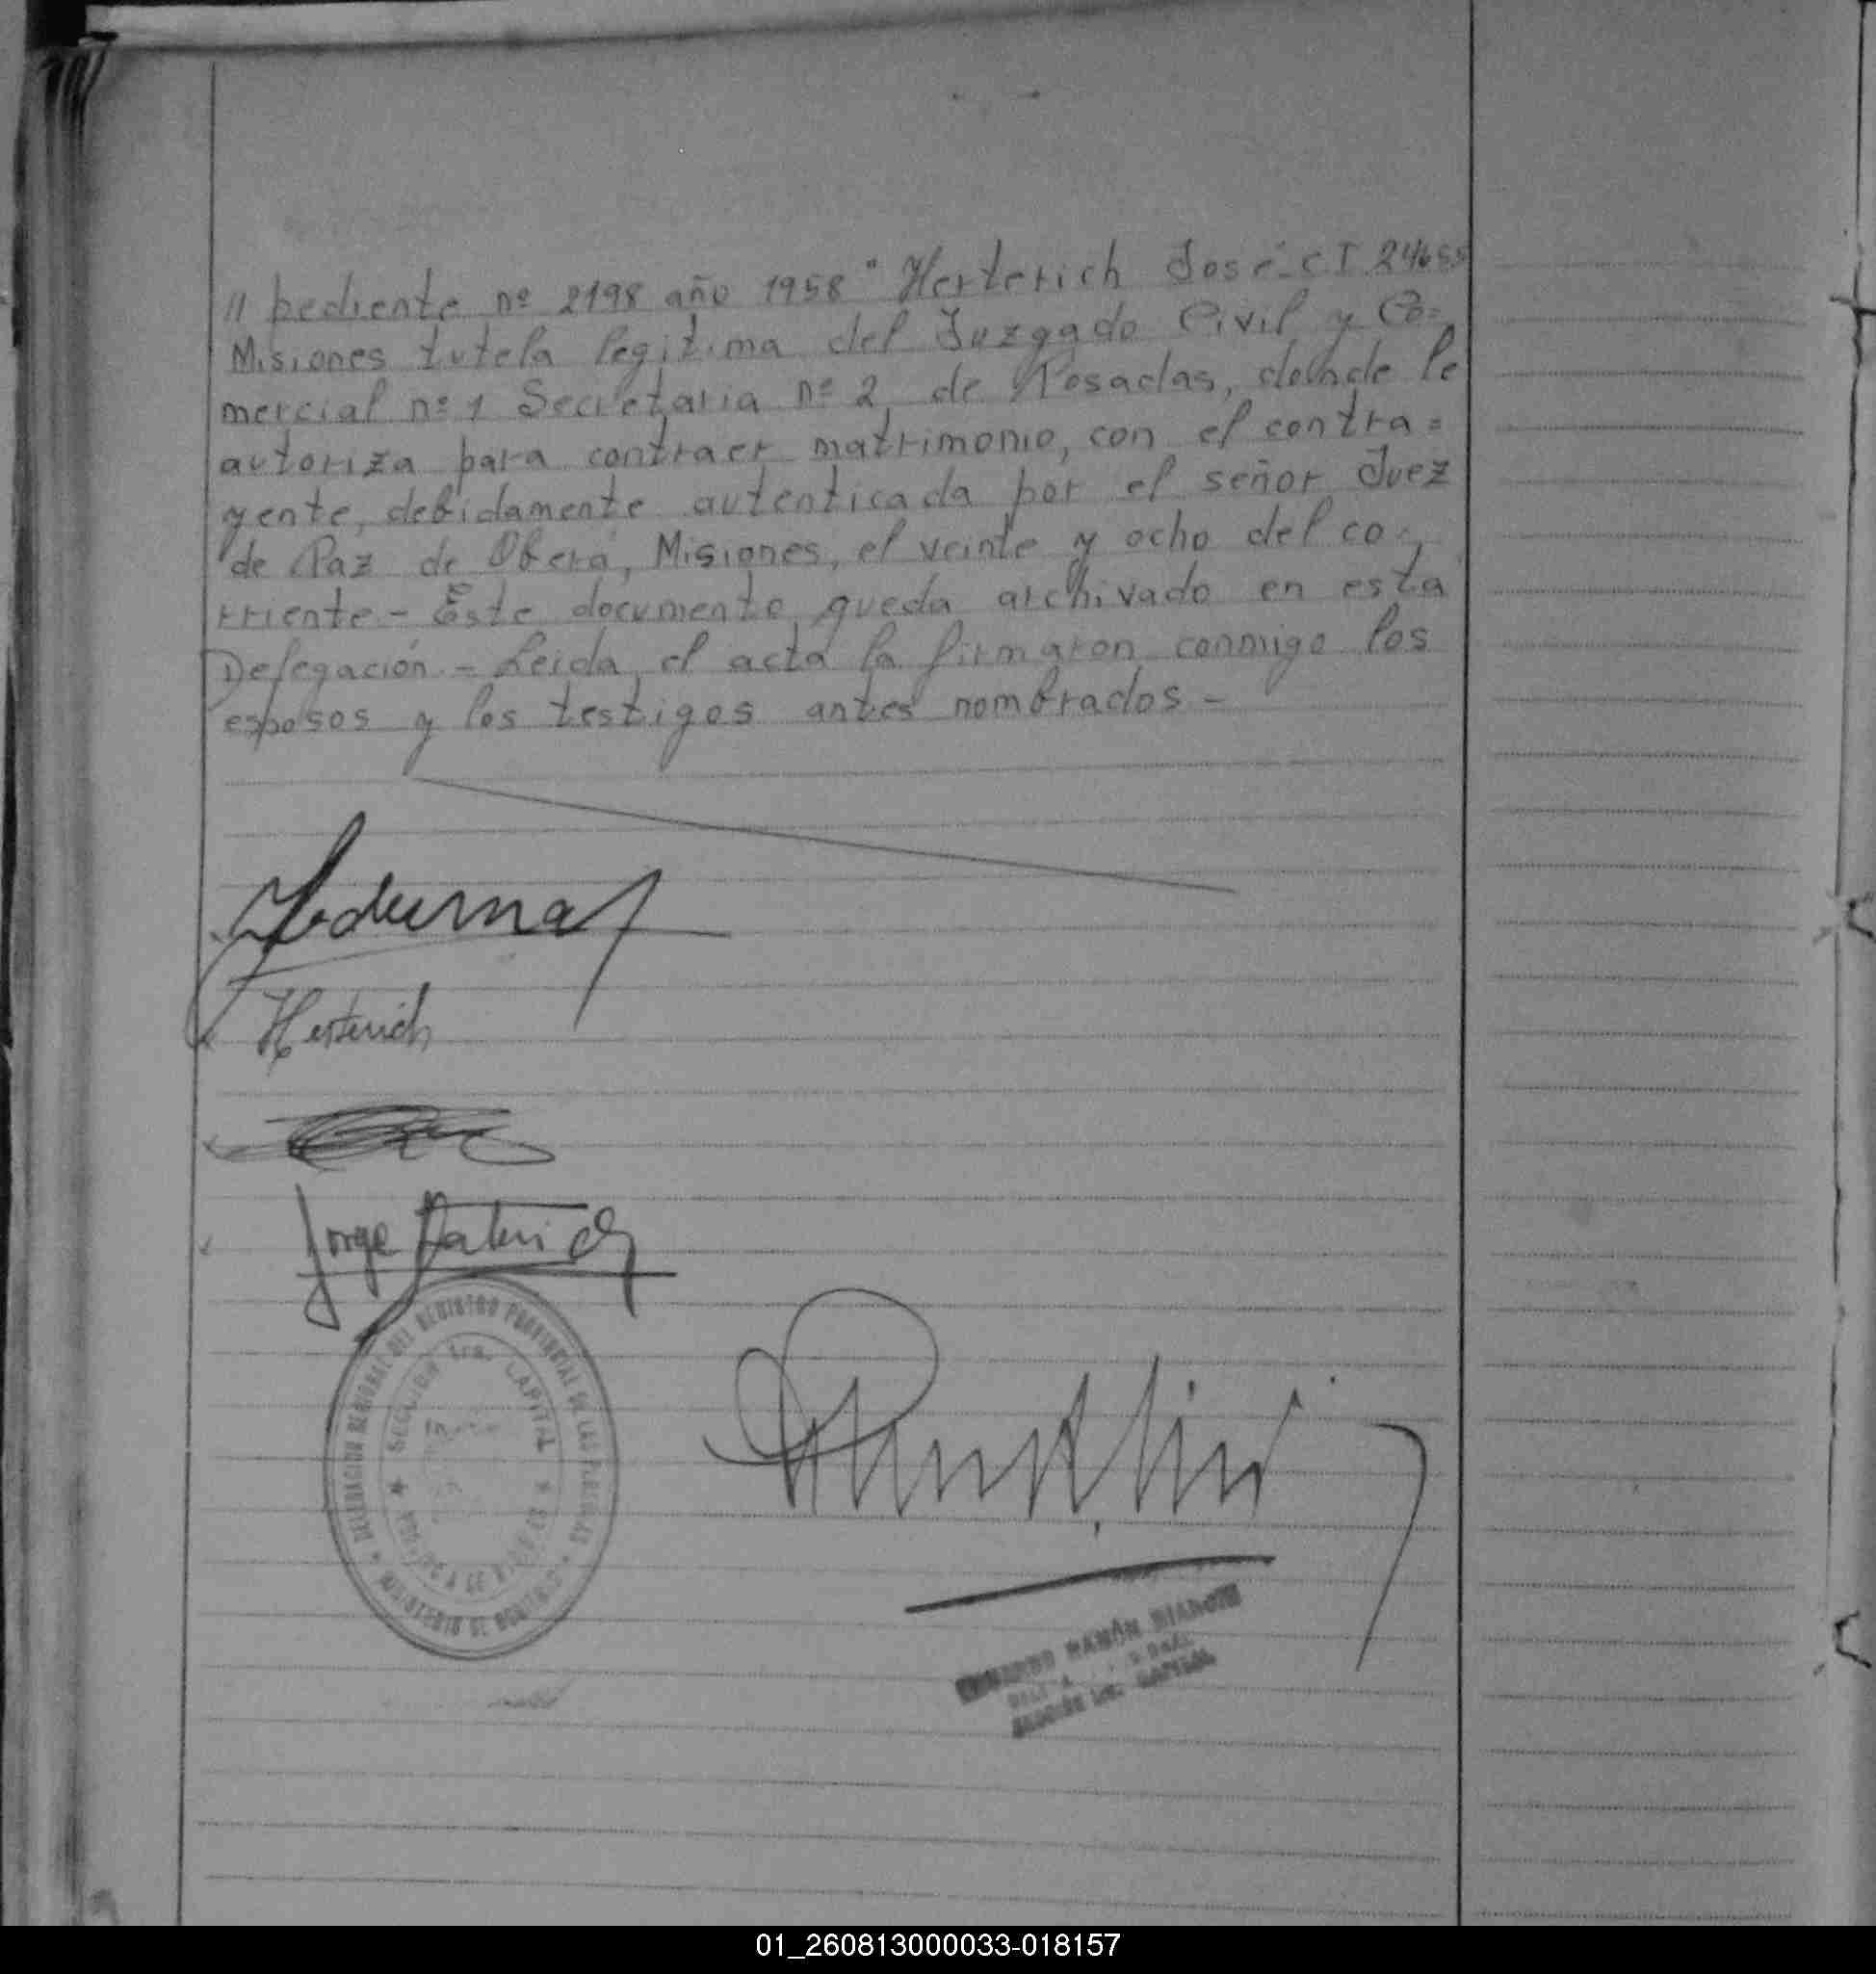 // pediente nº 2198 año 1958 "Herterich José - C I 24655
Misiones tutela legitima del Juzgado Civil y Co=
mercial nº 1 Secretaria nº 2, de Posadas, donde le
autoriza para contraer matrimonio, con el contra=
yente, debidamente autenticada por el señor Juez
de Paz de Oberá, Misiones, el veinte y ocho del co=
rriente - Este documento queda archivado en esta
Delegación - Leida el acta la firmaron conmigo los
esposos y los testigos antes nombrados -
Herterich
Jorge
DELEGACION REGIONAL DEL REGISTRO PROVINCIAL DE LAS PERSONAS
SECCION 1ra. CAPITAL
MINISTERIO DE GOBIERNO
RAMÓN
SECCIÓN 1ra. CAPITAL
01_260813000033-018157